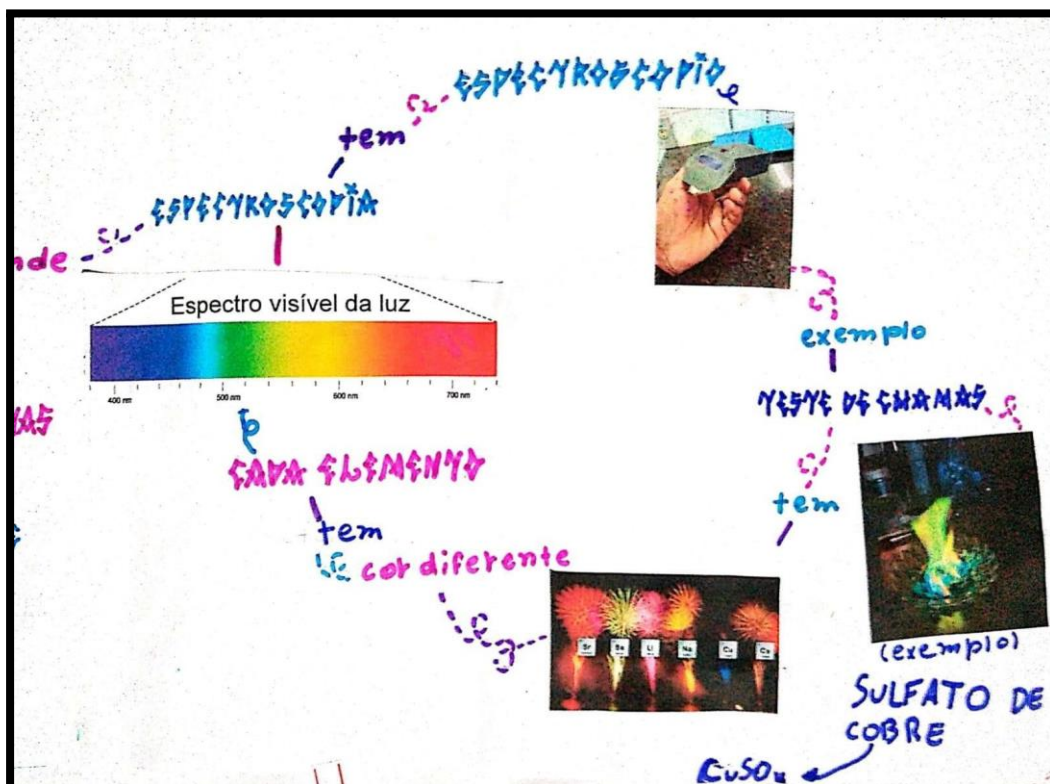 ESPECTROSCOPIO
tem
ESPECTROSCOPIA
nde
Espectro visível da luz
400 nm 500 nm 600 nm 700 nm
exemplo
TESTE DE CHAMAS
CADA ELEMENTO
tem
tem
cor diferente
Sr Ba Li Na Cu Ca
(exemplo)
SULFATO DE
COBRE
CuSO₄